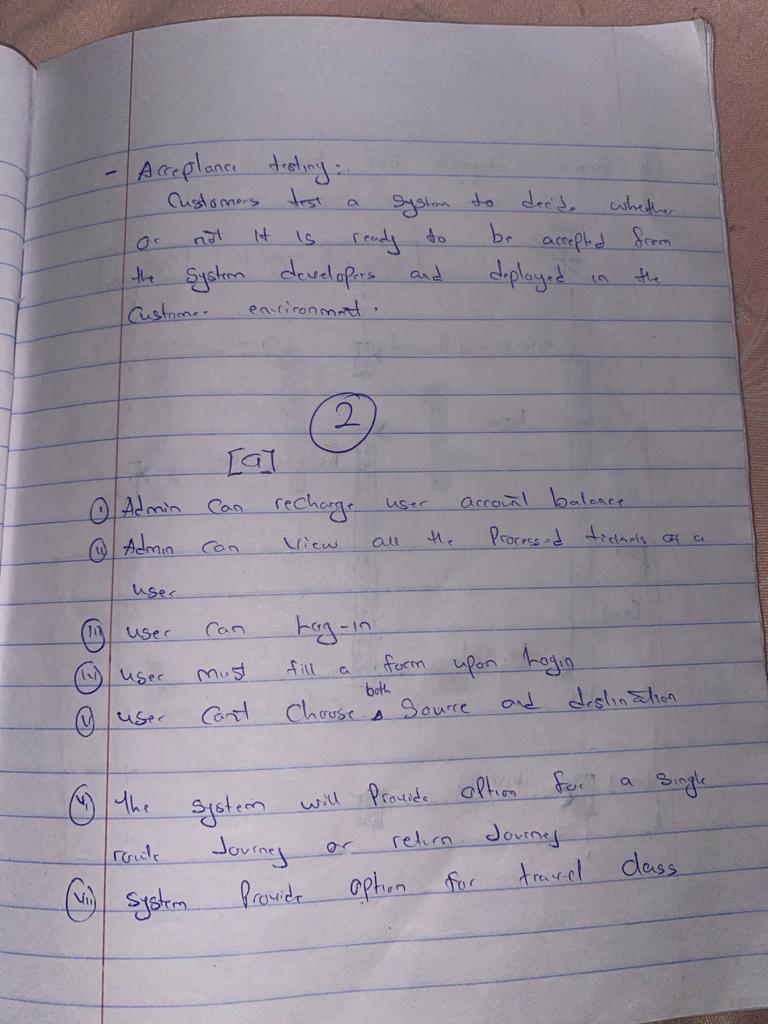 - Acceptance testing:.
Customers test a system to decide whether
or not it is ready to be accepted from
the system developers and deployed in the
Customer environment.
2
[a]
i Admin Can recharge user account balance
ii Admin can view all the Processed of a
user
iii user can Log-in
iv user must fill a form upon Login
v user Can't Choose both Source and destination
vi the system will Provide option for a single
route Journey or return Journey
vii system Provide option for travel class